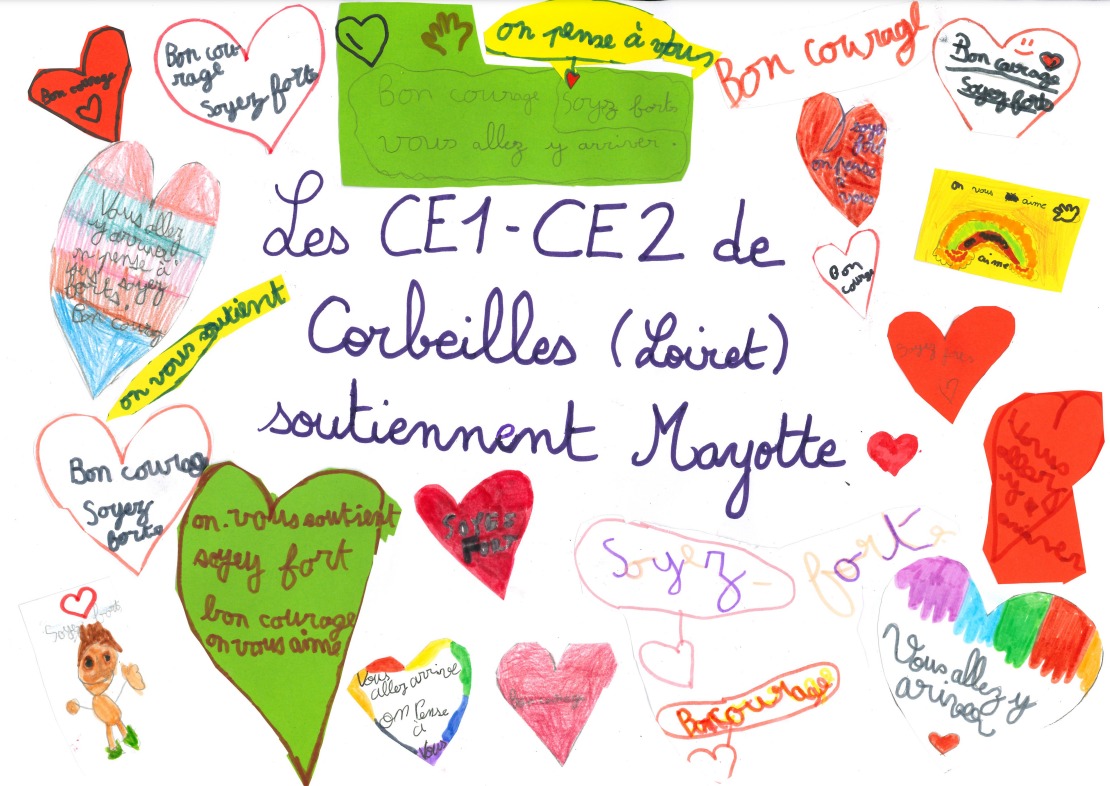 Bon courage
Bon cou-
rage
Soyez forts
on pense à vous
Bon courage
Soyez forts
vous allez y arriver.
Bon courage
Bon courage
Soyez forts
soyez
fort
on pense
à
vous
on vous aime
aime
Bon
courage
Vous allez
y arriver
on pense à
vous soyez
forts!
Bon courag
on vous soutient
Les CE1-CE2 de
Corbeilles (Loiret)
soutiennent Mayotte
Vous
allez
y
arriver
Bon courage
Soyez
forts
on vous soutient
soyey fort
bon courage
on vous aime
Soyez
Fort
Soyez forts
Soyez fort
Vous
allez arrive
on Pense
à
Vous
Bon courage
Bon courage
Vous allez y
ariver